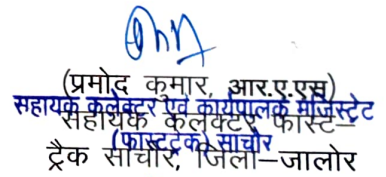 (प्रमोद कुमार, आर.ए.एस)
सहायक कलेक्टर एवं कार्यपालक मजिस्ट्रेट
सहायक कलेक्टर, फास्ट–
(फास्टट्रेक) सांचौर
ट्रैक सांचौर, जिला–जालोर